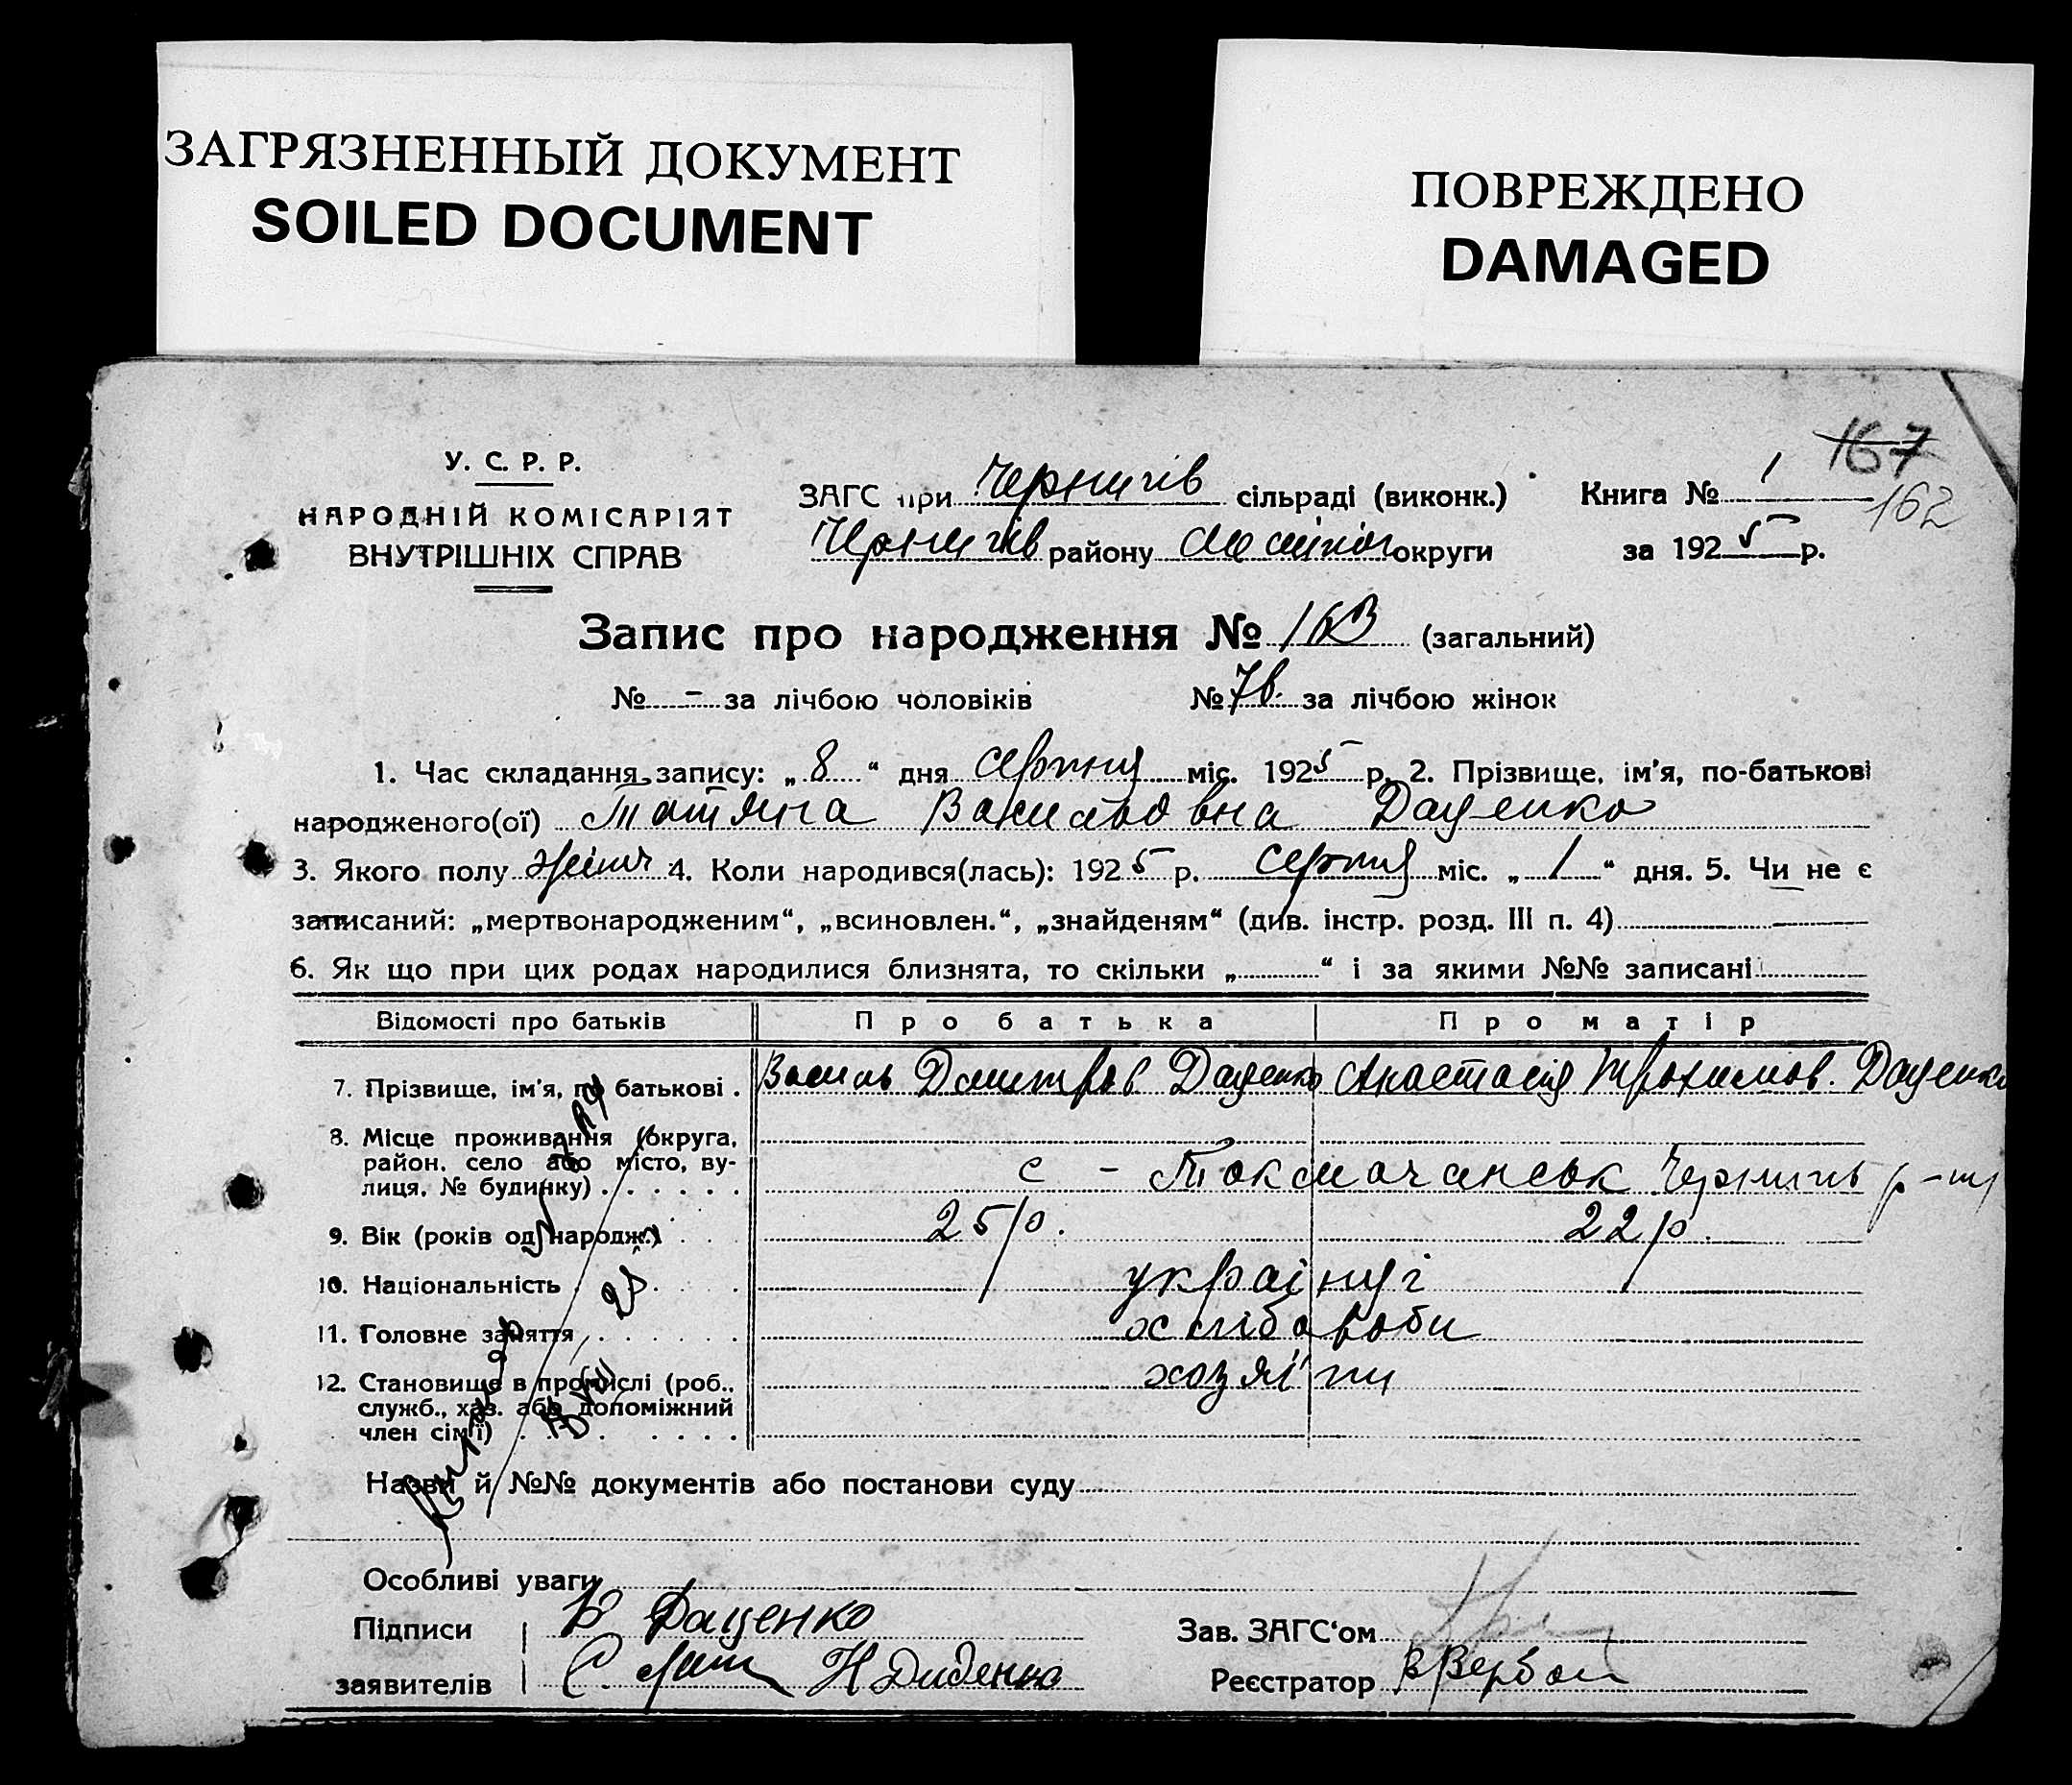 ЗАГРЯЗНЕННЫЙ ДОКУМЕНТ
SOILED DOCUMENT
ПОВРЕЖДЕНО
DAMAGED
167
162
У. С. Р. Р.
НАРОДНІЙ КОМІСАРІЯТ
ВНУТРІШНІХ СПРАВ
ЗАГС при Чернигів сільраді (виконк.) Книга № 1
Чернигів району округи за 1925 р.
Запис про народження № (загальний)
№ - за лічбою чоловіків № за лічбою жінок
1. Час складання запису: „ 8 “ дня серпня міс. 1925 р. 2. Прізвище, ім'я, по-батькові
народженого(ої) Татяна Васильовна Даценко
3. Якого полу жіноч 4. Коли народився(лась): 1925 р. серпня міс. „ 1 “ дня. 5. Чи не є
записаний: „мертвонародженим“, „всиновлен.“, „знайденям“ (див. інстр. розд. III п. 4)
6. Як що при цих родах народилися близнята, то скільки „ “ і за якими №№ записані
Відомості про батьків Про батька Про матір
7. Прізвище, ім'я, по батькові . Василь Дмитров Даценко Анастасія Трохимов. Даценко
8. Місце проживання (округа,
район, село або місто, ву-
лиця, № будинку) с - Токмачанськ Чернигів р-ну
9. Вік (років од народж.) 25 р. 22 р.
10. Національність українці
11. Головне заняття хлібороби
12. Становище в промислі (роб., хозяїни
служб., хаз. або допоміжний
член сім'ї)
Назви й №№ документів або постанови суду
Особливі уваги
Підписи В Даценко Зав. ЗАГС'ом
заявителів С. Н Диденко Реєстратор В Вербой